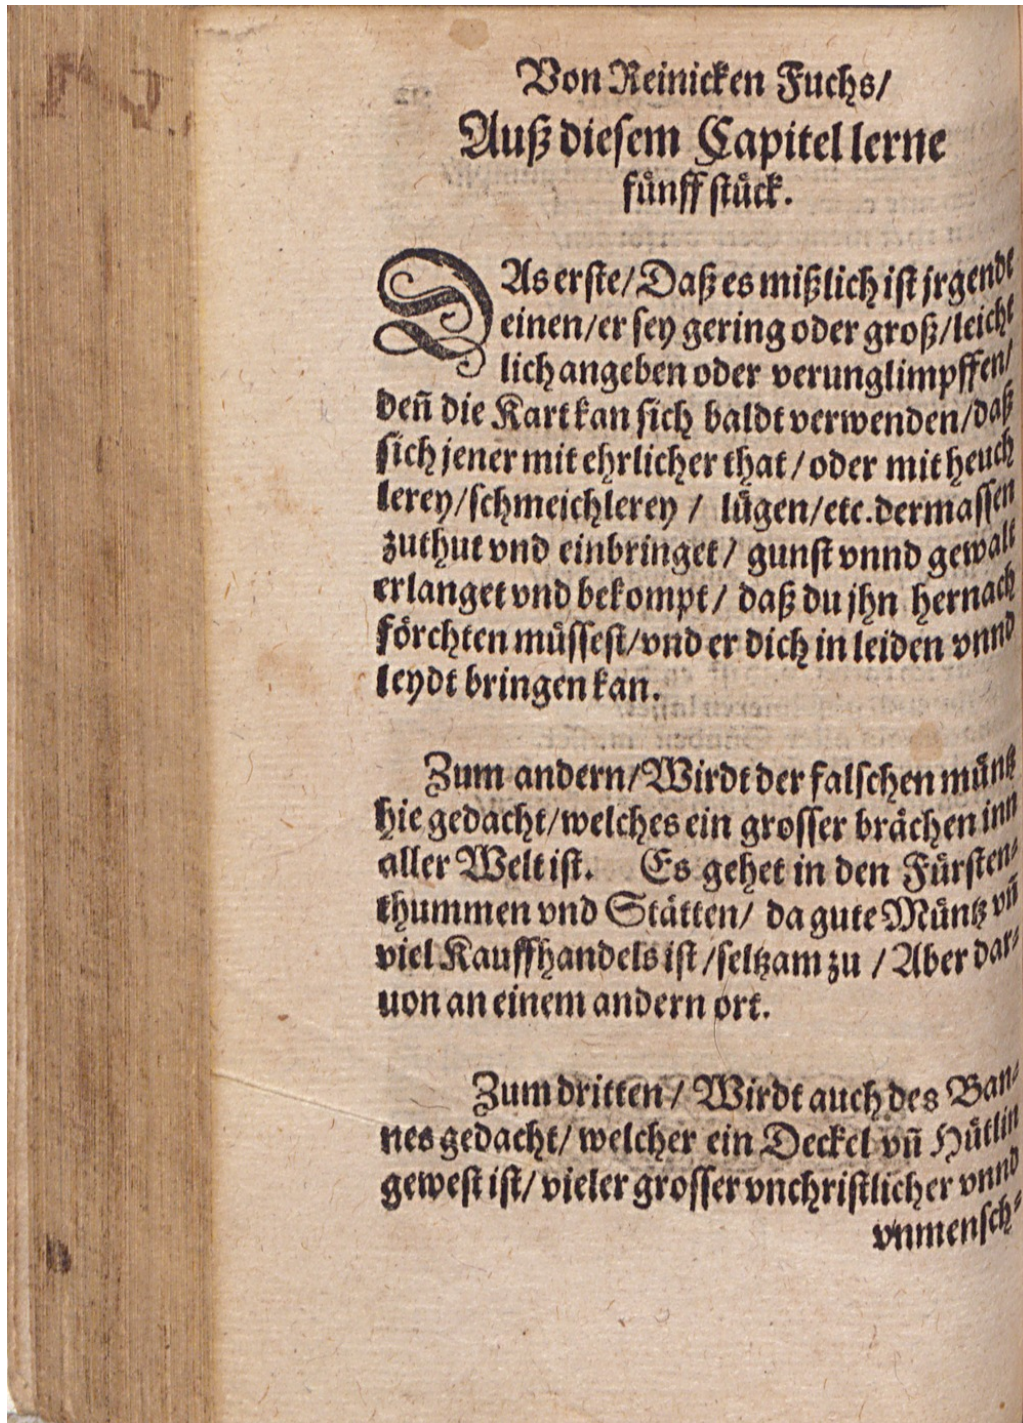 Von Reinicken Fuchs/
Auß diesem Capitel lerne
fünff stück.
DAs erste/Daß es mißlich ist jrgendt
einen/er sey gering oder groß/leicht
lich angeben oder verunglimpffen/
deñ die Kart kan sich baldt verwenden/daß
sich jener mit ehrlicher that/oder mit heuch
lerey/schmeichlerey / lügen/etc.dermassen
zuthut vnd einbringet/ gunst vnnd gewalt
erlanget vnd bekompt/ daß du jhn hernach
förchten müssest/vnd er dich in leiden vnnd
leydt bringen kan.
Zum andern/Wirdt der falschen müntz
hie gedacht/welches ein grosser brächen inn
aller Welt ist. Es gehet in den Fürsten-
thummen vnd Stätten/ da gute Müntz vñ
viel Kauffhandels ist/seltzam zu / Aber dar-
uon an einem andern ort.
Zum dritten/ Wirdt auch des Ban-
nes gedacht/ welcher ein Deckel vñ Hütlin
gewest ist/ vieler grosser vnchristlicher vnnd
vnmensch-